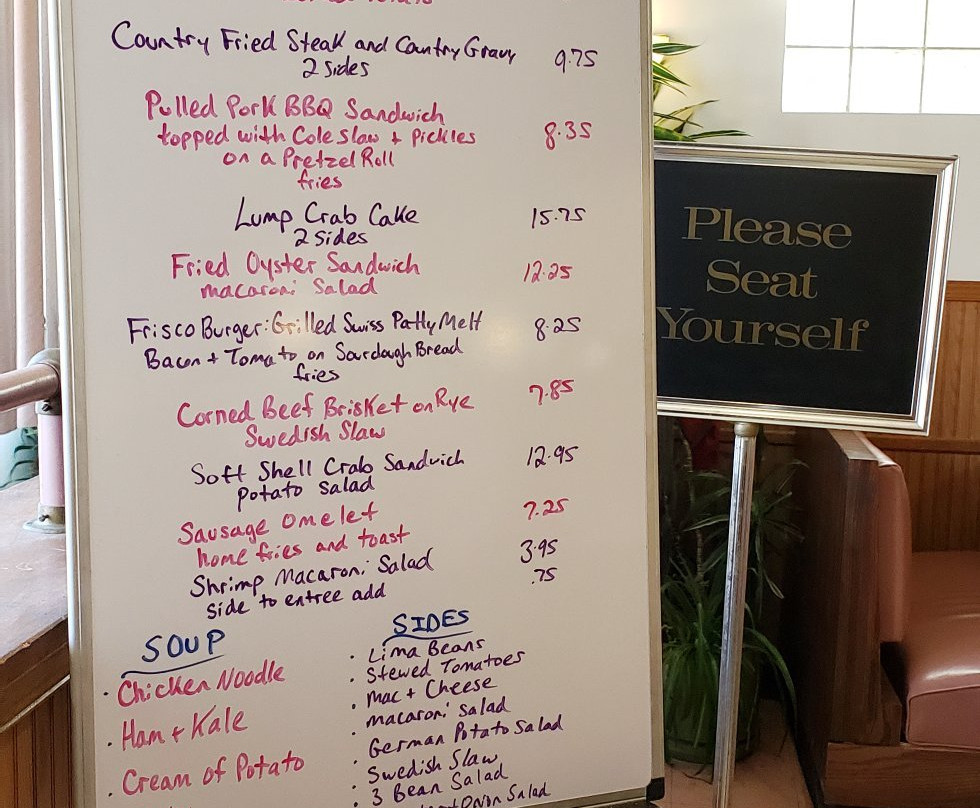 Country Fried Steak and Country Gravy 9.75
2 sides
Pulled Pork BBQ Sandwich
topped with Coleslaw + Pickles 8.35
on a Pretzel Roll
fries
Lump Crab Cake 15.75
2 sides
Fried Oyster Sandwich 12.25
macaroni Salad
Frisco Burger: Grilled Swiss Patty Melt 8.25
Bacon + Tomato on Sourdough Bread
fries
Corned Beef Brisket on Rye 7.85
Swedish Slaw
Soft Shell Crab Sandwich 12.95
potato salad
Sausage omelet 7.25
home fries and toast
Shrimp Macaroni Salad 3.95
side to entree add .75
SOUP
· Chicken Noodle
· Ham + Kale
· Cream of Potato
SIDES
· Lima Beans
· Stewed Tomatoes
· Mac + Cheese
· macaroni salad
· German Potato Salad
· Swedish Slaw
· 3 Bean Salad
Onion Salad
Please
Seat
Yourself